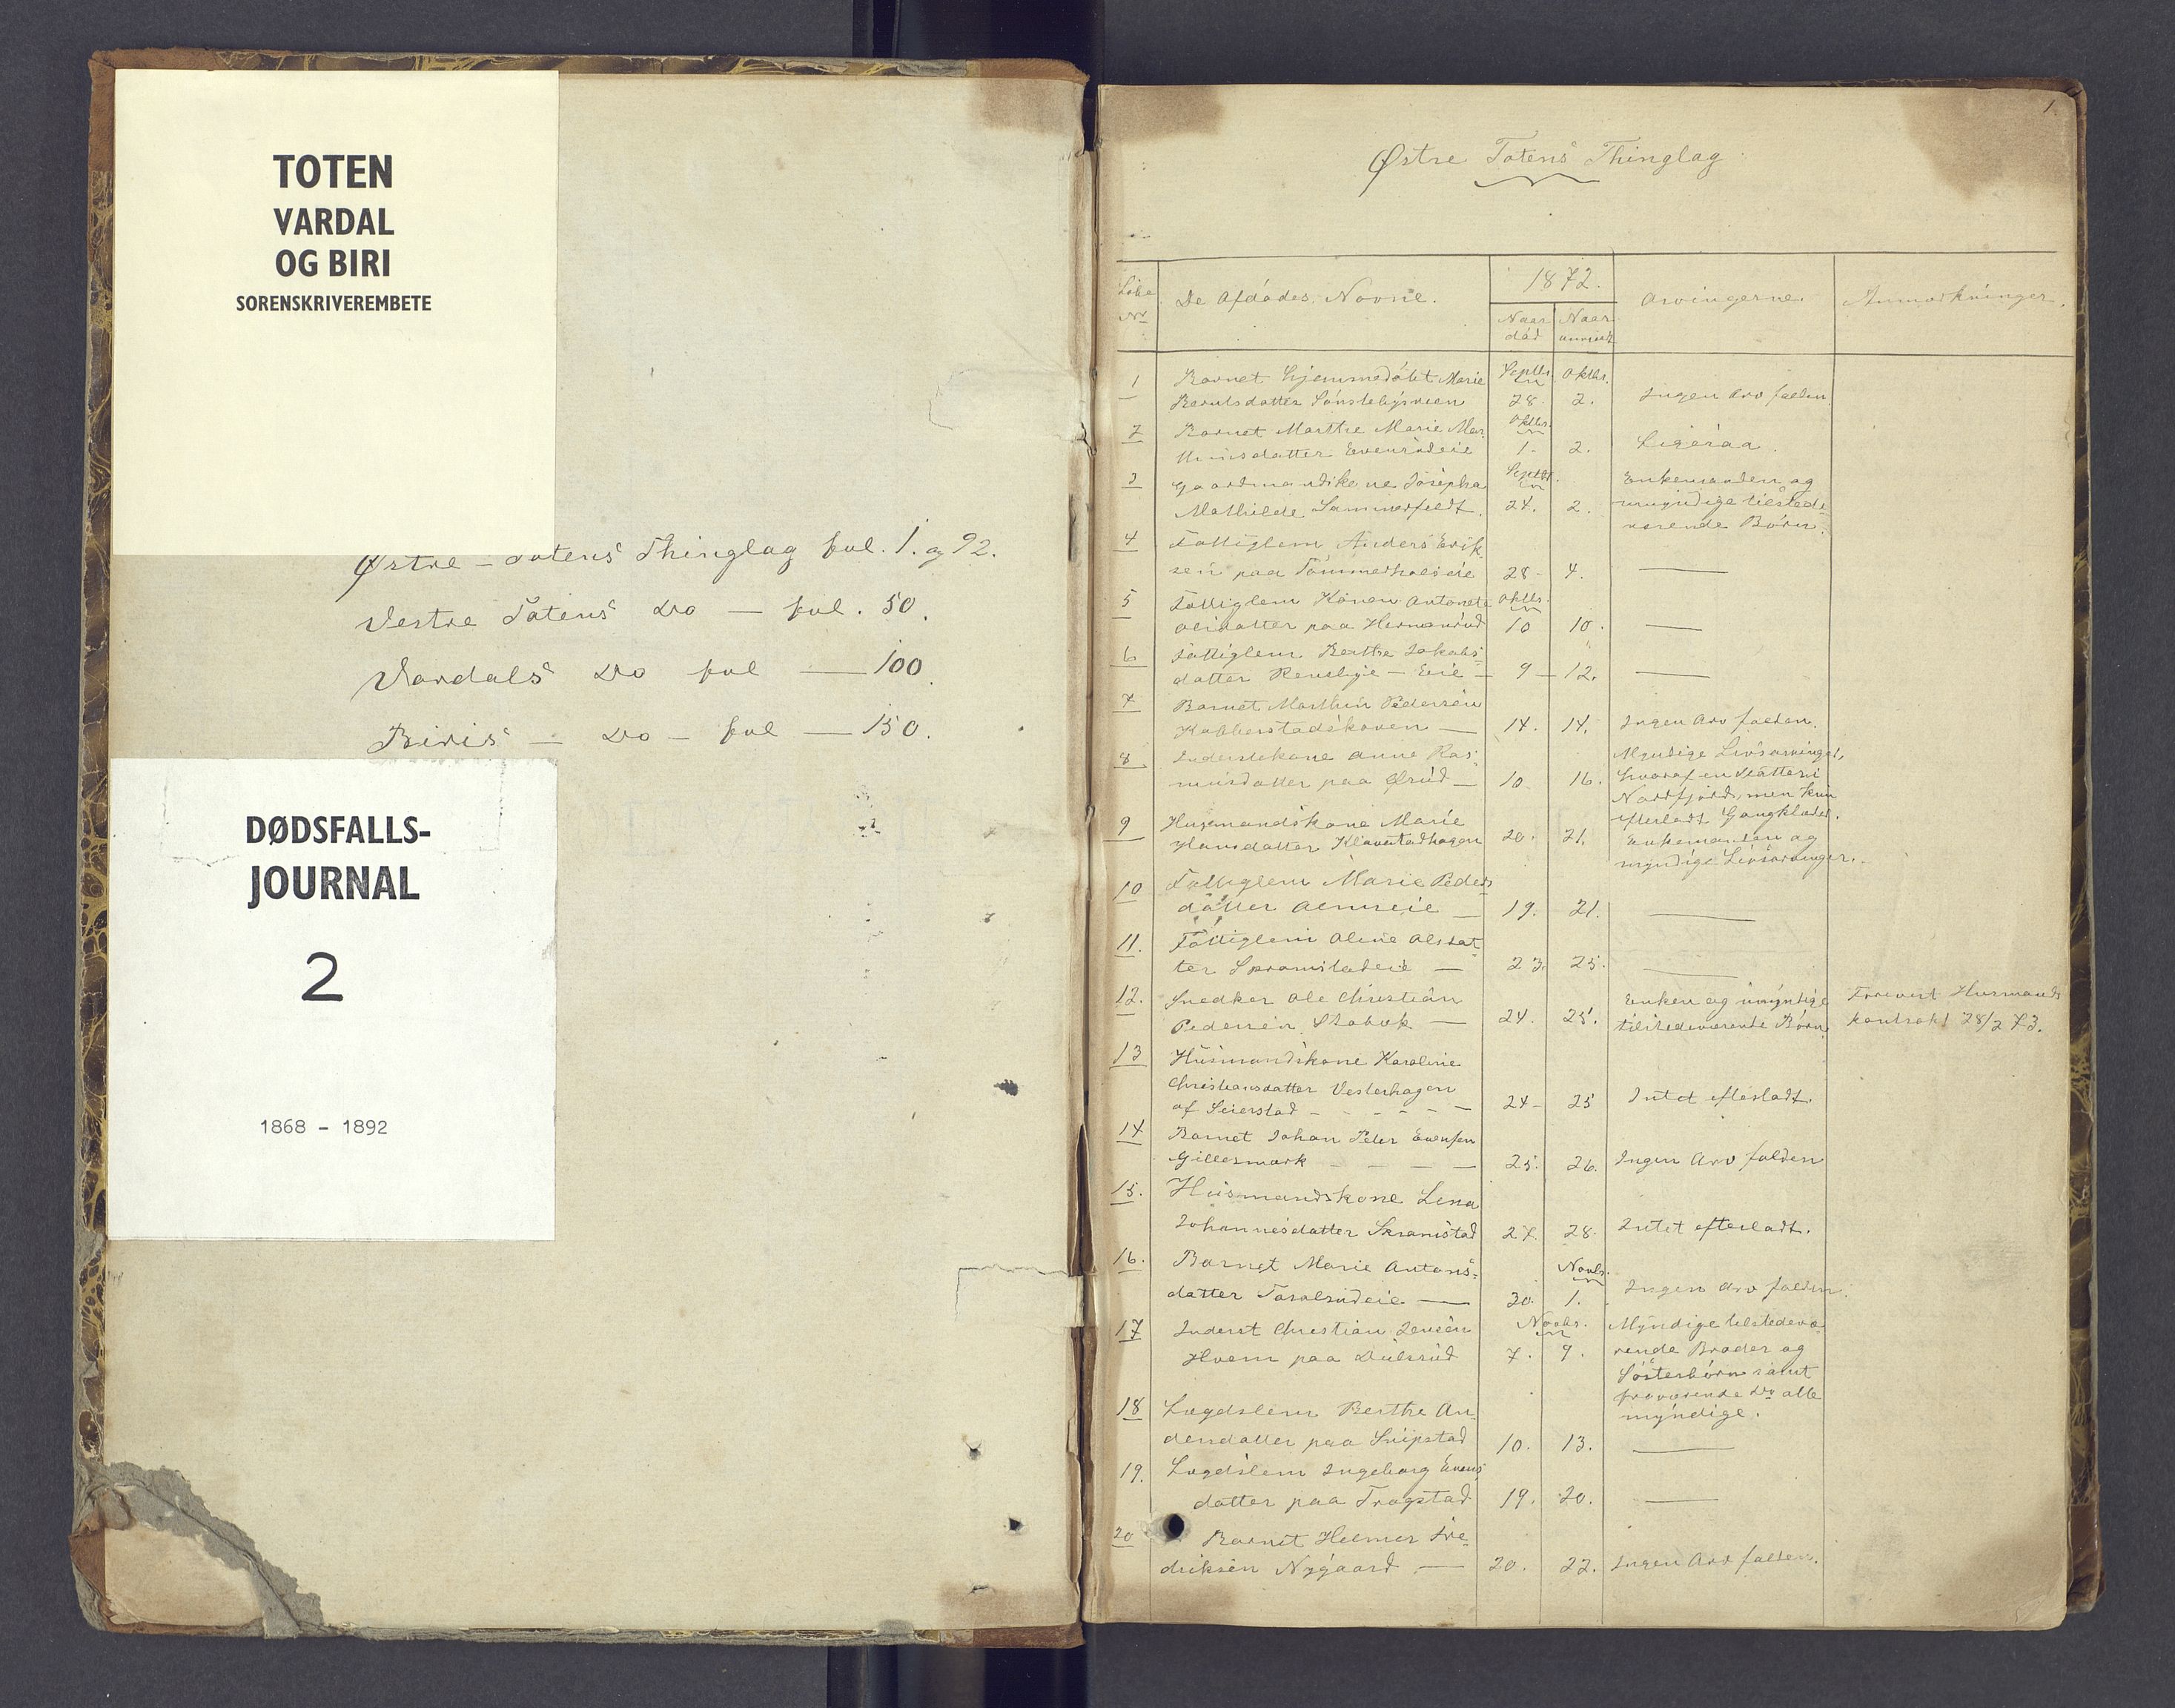 TOTEN
VARDAL
OG BIRI
SORENSKRIVEREMBETE
Østre - Totens Thinglag fol. 1. og 92.
Vestre Totens Do — fol. 50.
Vardals Do fol — 100.
Biris — Do — fol — 150.
DØDSFALLS-
JOURNAL
2
1868 - 1892
1
Østre Totens Thinglag
Löbe
No
De Afdödes Navne.
1872.
Naar
död
Naar
anmeldt
Arvingerne.
Anmærkninger.
1 Barnet hjemmedöbt Marie Septbr. Oktbr.
Berntsdatter 28. 2. Ingen Arv falden
2 Barnet Marthe Marie Mar- Oktbr.
thinsdatter Evensrudeie 1. 2. Ligesaa.
3 Gaardmandskone Josepha Septbr. Enkemanden og
Mathilde Sommerfeldt. 24. 2. umyndige tilstede-
værende Börn.
4 Fattiglem Anders Erik-
sen paa 28 - 4. —
5 Fattiglem Karen Antonette Oktbr.
Olsdatter paa 10 10. —
6 Fattiglem Berthe Jakobs-
datter - Eie - 9 - 12. —
7 Barnet Marthin Pedersen
Kabberstadskoven — 14. 14. Ingen Arv falden.
8 Inderstekone Anne Ras- Myndige Livsarvinger,
musdatter paa — 10 16. hvoraf en Datter i
Nordfjord, men kun
efterladt Gangklæder.
9 Husmandskone Marie
Hansdatter 20. 21. Enkemanden og
myndige Livsarvinger.
10 Fattiglem Marie Peders-
datter — 19. 21. —
11. Fattiglem Oline Olsdat-
ter — 23. 25. —
12. Snedker Ole Christian Enken og umyndige Husmands
Pedersen — 24. 25. tilstedeværende Börn kontrakt 28/2 73.
13 Husmandskone Karoline
Christiansdatter Vesterhagen
af Seierstad - - - - - 24 - 25 Intet efterladt.
14 Barnet Johan Peter Evensen
Gillesmark - - - - 25. 26. Ingen Arv falden
15. Husmandskone Lena
Johannesdatter Skramstad 27. 28. Intet efterladt.
16. Barnet Marie Antons- Novbr.
datter — 30. 1. Ingen Arv falden.
17 Inderst Christian Jensen Novbr. Myndige tilstedevæ-
paa 7. 9. rende Broder og
Sösterbörn samt
fraværende Do alle
myndige.
18 Lægdslem Berthe An-
dersdatter paa Snipstad 10. 13. —
19. Lægdslem Ingeborg Evens-
datter paa Trogstad 19. 20. —
20 Barnet Helmer Fre-
driksen Nygaard — 20. 22. Ingen Arv falden.